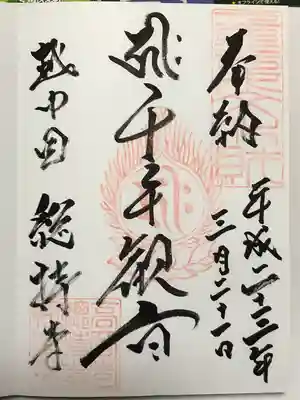 奉納
平成二十三年
三月二十一日
千手観音
越中国 総持寺